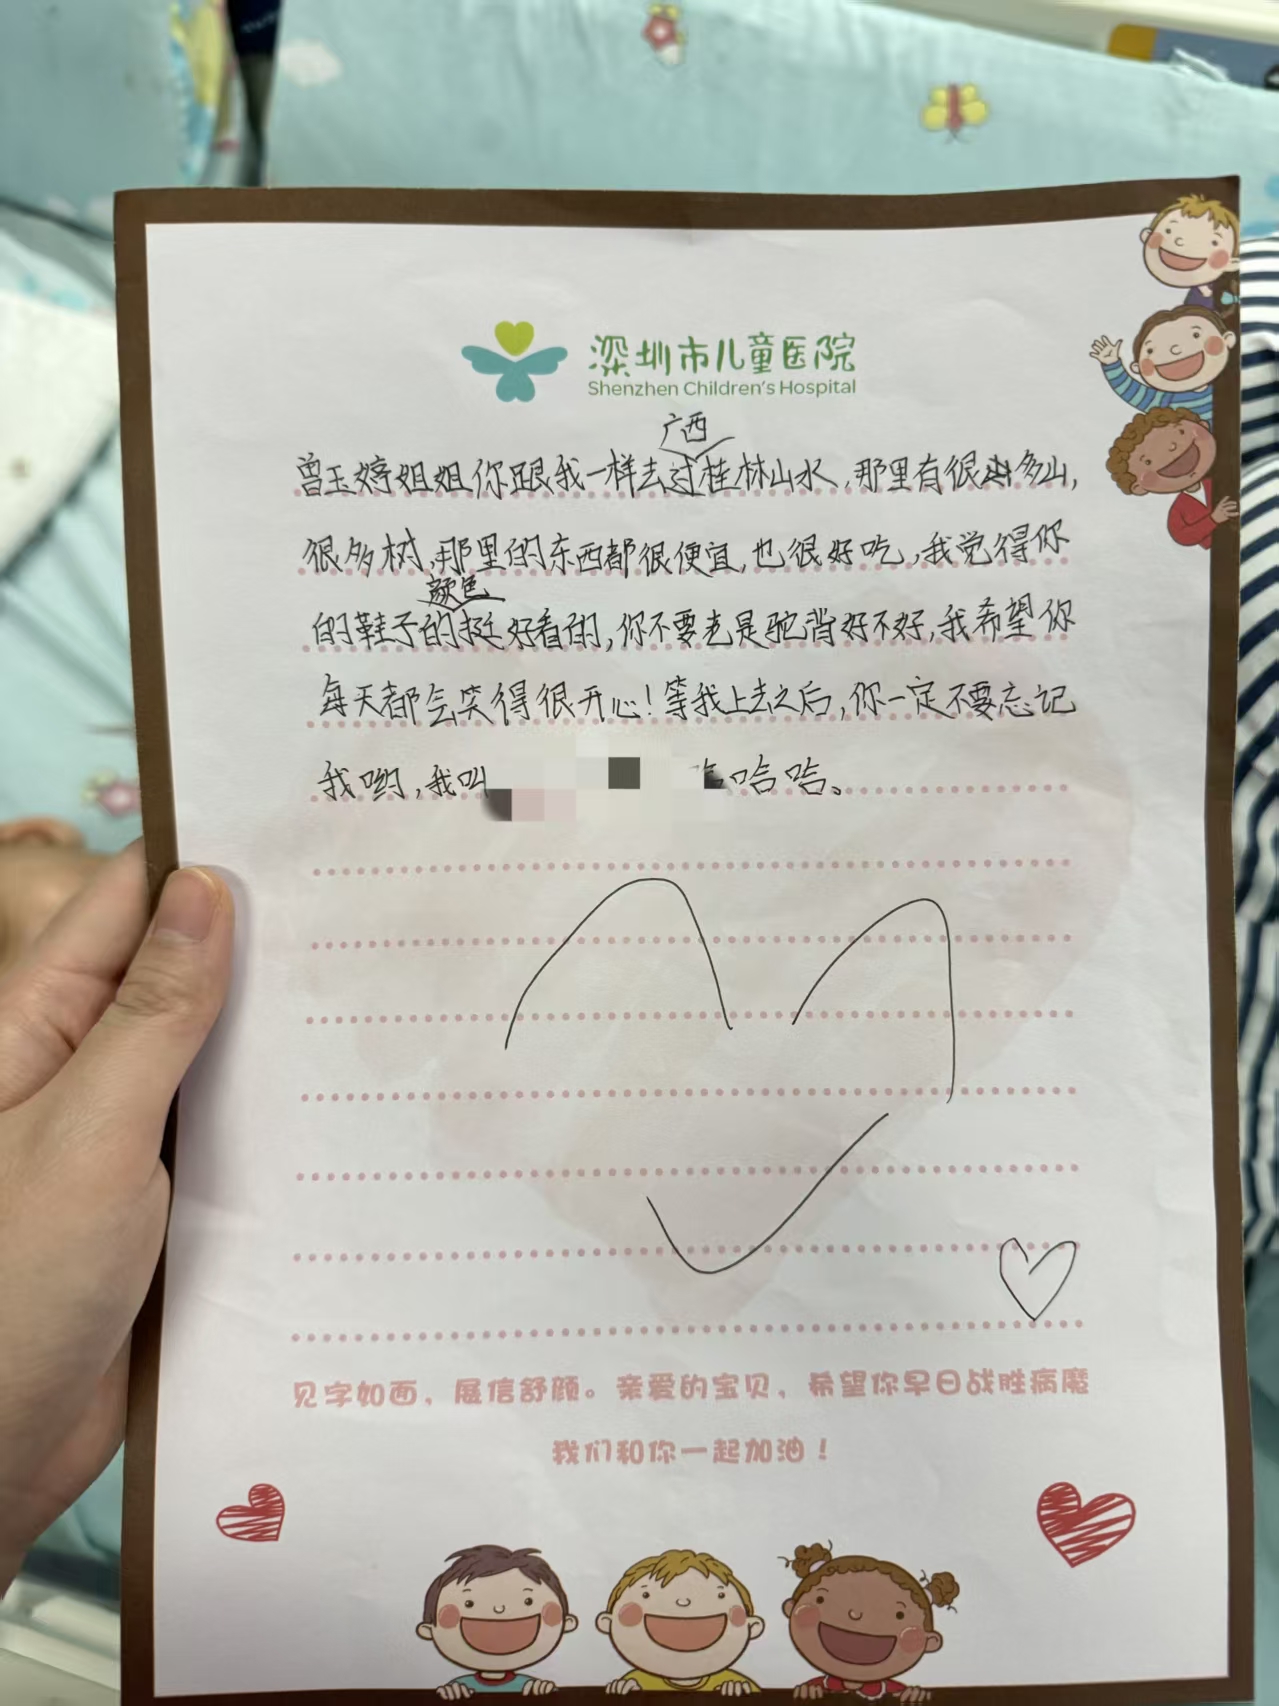 深圳市儿童医院
Shenzhen Children's Hospital
广西
曾玉婷姐姐你跟我一样去过桂林山水,那里有很多山,
很多树,那里的东西都很便宜,也很好吃,我觉得你
颜色
的鞋子的挺好看的,你不要老是驼背好不好,我希望你
每天都会笑得很开心!等我上去之后,你一定不要忘记
我哟,我叫 哈哈。
见字如面,展信舒颜。亲爱的宝贝,希望你早日战胜病魔
我们和你一起加油!